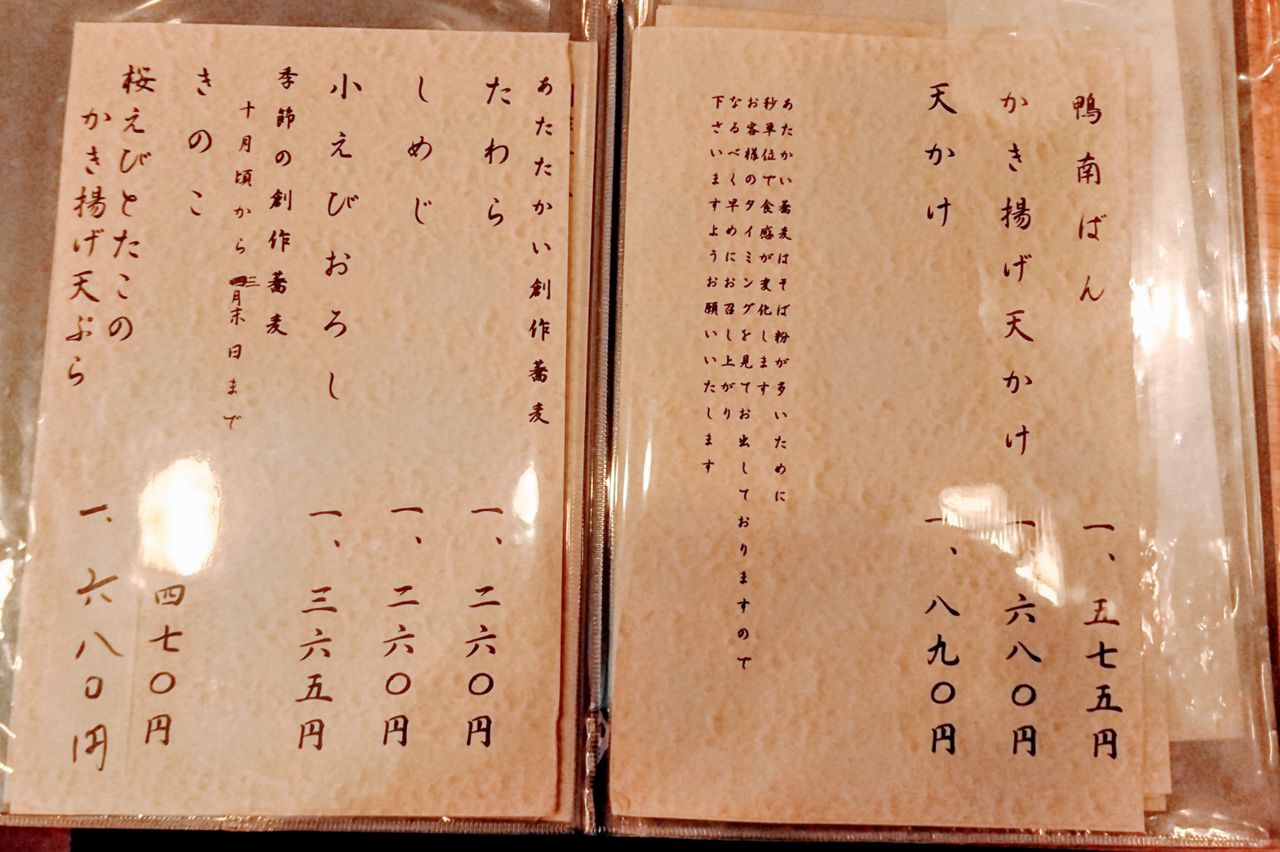 鴨南ばん 一、五七五円
かき揚げ天かけ 一、六八〇円
天かけ 一、八九〇円
あたかい蕎麦はそば粉が多いために
秒単位で食感が変化します
お客様のタイミングを見てお出しておりますので
なるべく早めにお召し上がり
下さいますようお願いいたします
あたたかい創作蕎麦
たわら 一、二六〇円
しめじ 一、二六〇円
小えびおろし 一、三六五円
季節の創作蕎麦
十月頃から三月末日まで
きのこ 四七〇円
桜えびとたこの
かき揚げ天ぷら 一、六八〇円